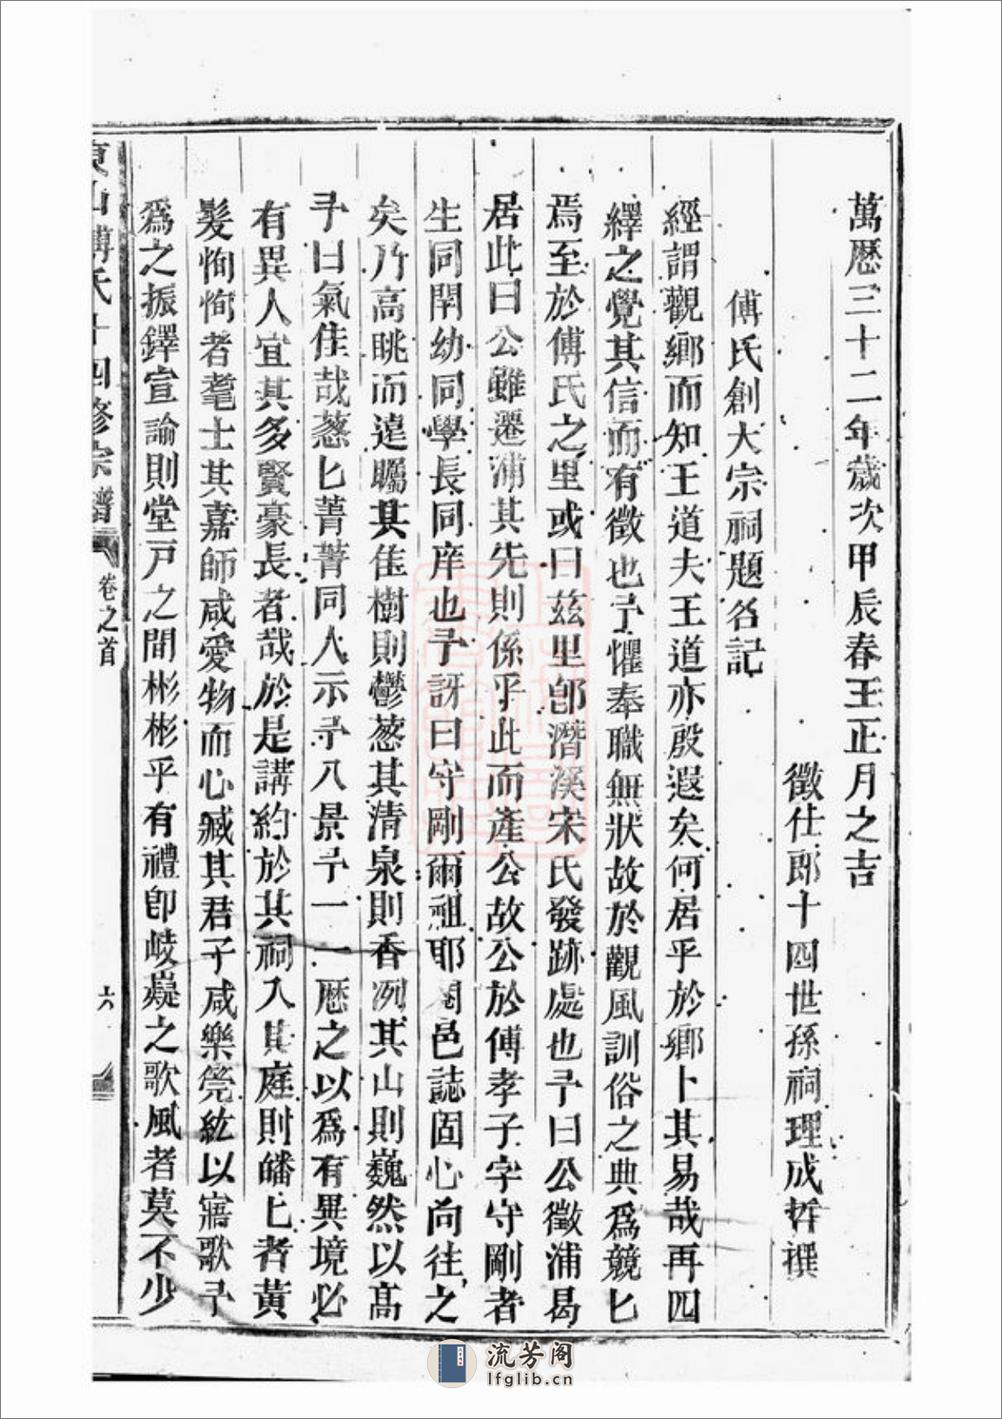 萬厯三十二年歲次甲辰春王正月之吉
徵仕郎十四世孫祠理成哲撰
傅氏創大宗祠題名記
經謂觀鄉而知王道夫王道亦殷遐矣何居乎於鄉卜其易哉再四
繹之覺其信而有徵也予懼奉職無狀故於觀風訓俗之典爲競匕
焉至於傅氏之里或曰茲里卽潛溪宋氏發跡處也予曰公徵浦曷
居此曰公雖遷浦其先則係乎此而產公故公於傅孝子字守剛者
生同閈幼同學長同庠也予訝曰守剛爾祖耶閱邑誌固心尚往之
矣乃高眺而遠矚其佳樹則鬱葱其清泉則香冽其山則巍然以高
予曰氣佳哉葱匕菁菁同人示予八景予一一厯之以爲有異境必
有異人宜其多賢豪長者哉於是講約於其祠入其庭則皤匕者黃
髮恂恂者耄士其嘉師咸愛物而心臧其君子咸樂
紘以寤歌予
爲之振鐸宣諭則堂戸之間彬彬乎有禮卽岐嶷之歌風者莫不少
東山傅氏十四修宗譜
卷之首
六
流芳阁
lfglib.cn